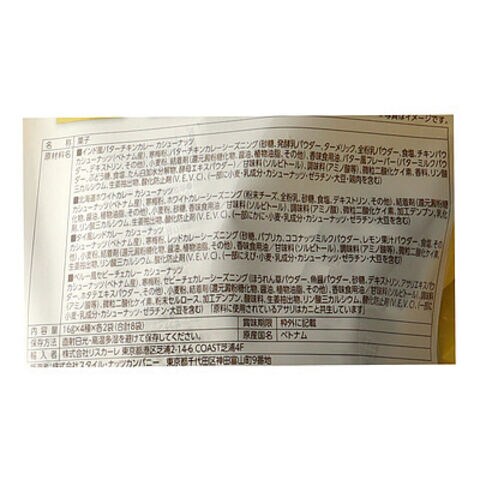 ※写真はイメージです。
名 称 菓子
原材料名 ■インド風バターチキンカレー カシューナッツ
カシューナッツ(ベトナム産)、寒梅粉、バターチキンカレーシーズニング(砂糖、発酵乳パウダー、ターメリック、全粉乳パウダー、食塩、チキンパウ
ダー、デキストリン、その他)、小麦粉、結着剤(還元澱粉糖化物、醤油、植物油脂、その他)、香味食用油、バター風フレーバー(バターミルクパウ
ダー、ぶどう糖、食塩、たん白加水分解物、酵母エキスパウダー)/甘味料(ソルビトール)、調味料(アミノ酸等)、微粒二酸化ケイ素、香料、リン酸三
カルシウム、生姜抽出物、酸化防止剤(V.E、V.C)、(一部に小麦・乳成分・カシューナッツ・ゼラチン・大豆・鶏肉を含む)
■北海道ホワイトカレー カシューナッツ
カシューナッツ(ベトナム産)、寒梅粉、ホワイトカレーシーズニング(粉末チーズ、全粉乳、砂糖、食塩、デキストリン、その他)、結着剤(還元澱粉糖
化物、醤油、植物油脂、その他)、小麦粉、香味食用油/甘味料(ソルビトール)、調味料(アミノ酸)、微粒二酸化ケイ素、加工デンプン、乳化
剤、リン酸三カルシウム、生姜抽出物、酸化防止剤(V.E、V.C)、(一部にかに・小麦・乳成分・カシューナッツ・ゼラチン・大豆を含む)
■タイ風レッドカレー カシューナッツ
カシューナッツ(ベトナム産)、寒梅粉、レッドカレーシーズニング(砂糖、パプリカ、ココナッツミルクパウダー、レモン果汁パウダー、食塩、その
他)、結着剤(還元澱粉糖化物、醤油、植物油脂、その他)、小麦粉、香味食用油/甘味料(ソルビトール)、調味料(アミノ酸等)、微粒二酸化ケイ素、
生姜抽出物、リン酸三カルシウム、酸化防止剤(V.E、V.C)、(一部にえび・小麦・乳成分・カシューナッツ・ゼラチン・大豆を含む)
■ペルー風セビーチェカレー カシューナッツ
カシューナッツ(ベトナム産)、寒梅粉、セビーチェカレーシーズニング(ほうれん草パウダー、魚醤パウダー、砂糖、デキストリン、アサリエキスパウ
ダー、ホタテエキスパウダー、その他)、小麦粉、結着剤(還元澱粉糖化物、醤油、植物油脂、その他)、香味食用油/甘味料(ソルビトール)、調味料
(アミノ酸等)、微粒二酸化ケイ素、粉末セルロース、加工デンプン、酸味料、生姜抽出物、リン酸三カルシウム、酸化防止剤(V.E、V.C)、(一部に
小麦・乳成分・カシューナッツ・ゼラチン・大豆を含む) 「原料に使用されているアサリはカニと共生しています」
内 容 量 16g×4種×各2袋(合計8袋) 賞味期限 枠外に記載
保存方法 直射日光・高温多湿を避けて保存してください。 原産国名 ベトナム
輸 入 者 株式会社リスカーレ 東京都港区芝浦2-14-6 COAST芝浦4F
株式会社スタイル・ナッツカンパニー 東京都千代田区神田富山町9番地